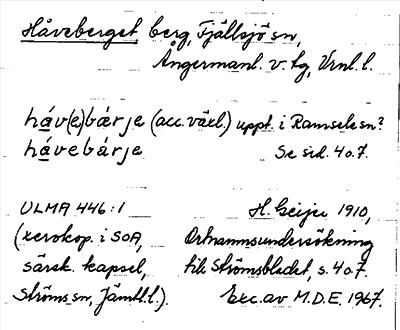 Håveberget, berg, Fjällsjö sn,
Ångermanl. v. tg, Vrnl. l.
háv(e)bærje (acc. växl.) uppt. i Ramsele sn?
hávebárje Se sid. 4 o. 7.
ULMA 446:1 H. Geijer 1910,
(xerokop. i SOA, Ortnamnsundersökning
särsk. kapsel, till Strömsbladet, s. 4 o. 7.
Ströms sn, Jämtl. l.). Exc. av M.D.E. 1967.